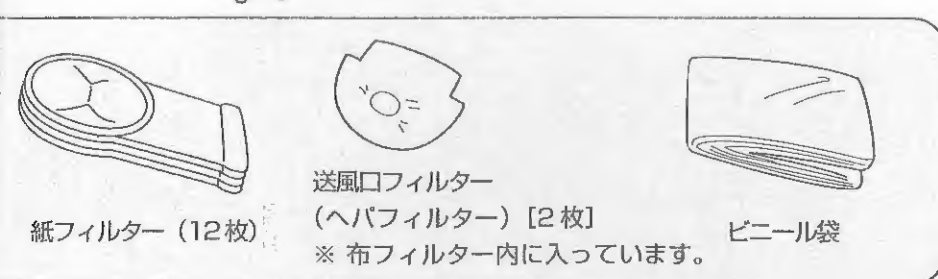 紙フィルター（12枚）
送風口フィルター
（ヘパフィルター）［2枚］
※ 布フィルター内に入っています。
ビニール袋